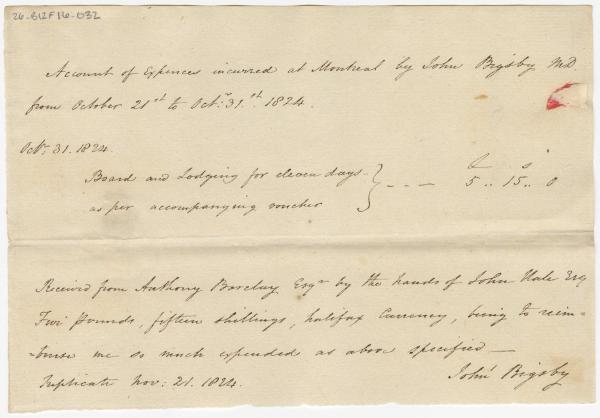 26-B12F16-032
Account of Expences incurred at Montreal by John Bigsby MD
from October 21st to Octr. 31st. 1824.
Octr. 31. 1824.
£ s
Board and Lodging for eleven days } - - - 5 .. 15 .. 0
as per accompanying voucher
Received from Anthony Barclay Esqr by the hands of John Hale Esq
Five Pounds, fifteen shillings, halifax Currency, being to reim-
-burse me so much expended as above specified —
Triplicate Nov: 21. 1824. John Bigsby